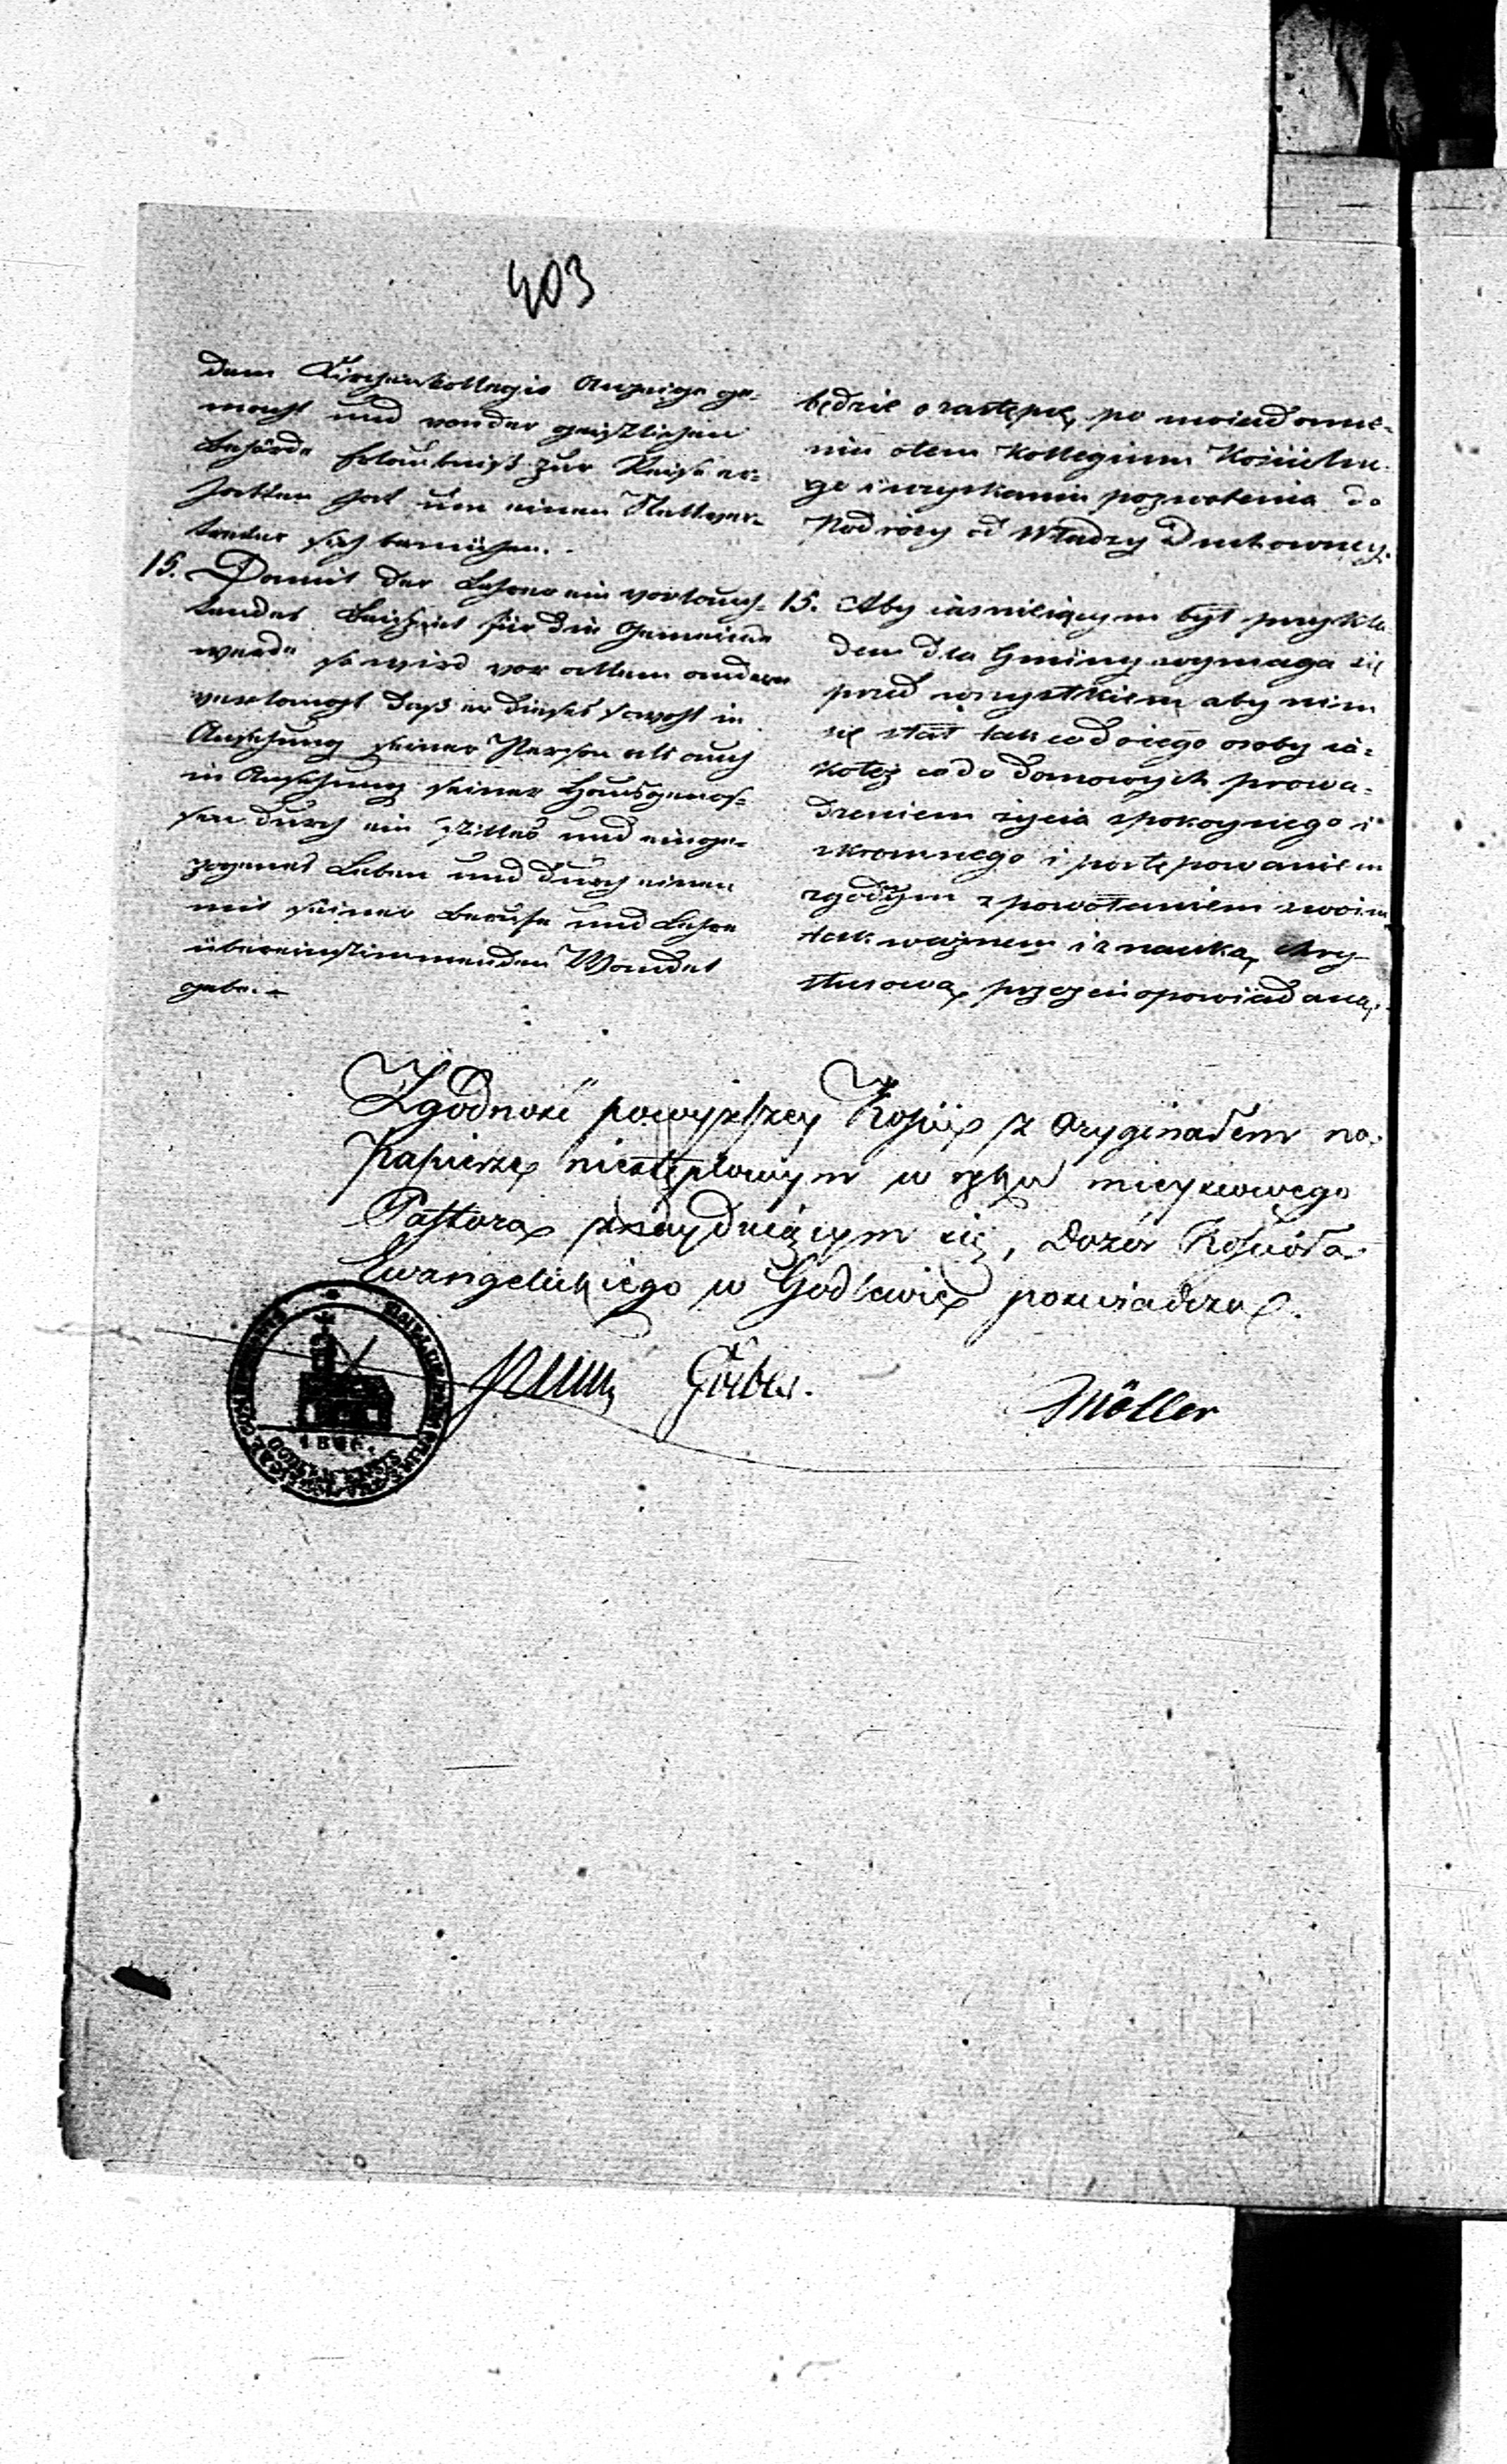 403
dem Kirchenkollegio Anzeige ge-
macht und von der geistlichen
Behörde Erlaubniß zur Reise er-
halten hat um einen Stellver-
treter sich bemühen.
15. Damit der Lehrer ein vorleuch-
tendes Beispiel für die Gemeinde
werde so wird vor allem andern
verlangt daß er dieses sowohl in
Ansehung seiner Person als auch
in Ansehung seiner Hausgenos-
sen durch ein stilles und einge-
zogenes Leben und durch einen
mit seiner Berufe und Lehre
übereinstimmenden Wandel
gebe.
będzie o zastępcę, po uwiadomie-
niu otem Kollegium Kościelne-
go i uzyskaniu pozwolenia do
Podróży od Władzy Duchowney.
15. Aby iaśnieiącym był przykła-
dem dla Gminy wymaga się
przed wszystkiem aby nim
się stał tak co do iego osoby ia-
koteż co do domowych prowa-
dzeniem życia spokoynego i
skromnego i postępowaniem
zgodnym z powołaniem swoim
tak ważnem i z nauką Chry-
stusową, przezeń opowiadaną.
Zgodność powyższey Kopii z Oryginałem na
Papierze niestęplowym w ręku mieyscowego
Pastora znayduiącym się, Dozór Kościoła
Ewangelickiego w Godlewie poświadcza.
Möller